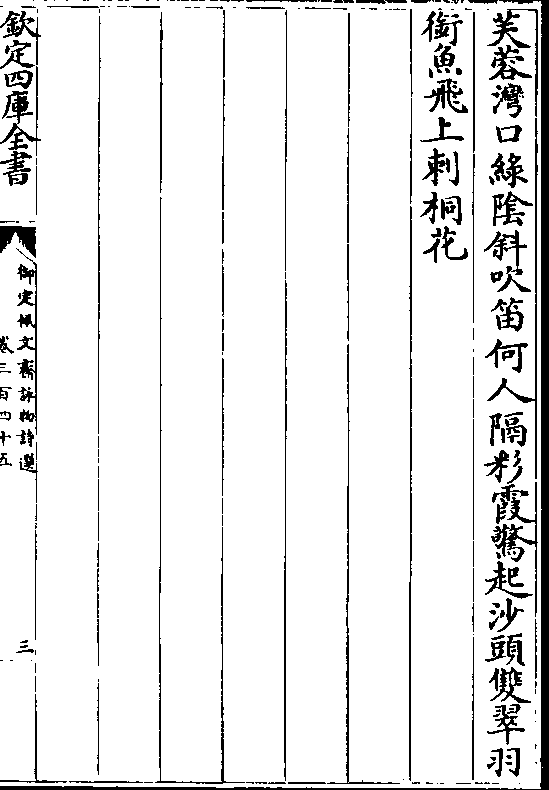 芙蓉灣口綠陰斜吹笛何人隔彩霞驚起沙頭雙翠羽
銜魚飛上刺桐花
欽定四庫全書
御定佩文齋詠物詩選
卷三百四十五
三